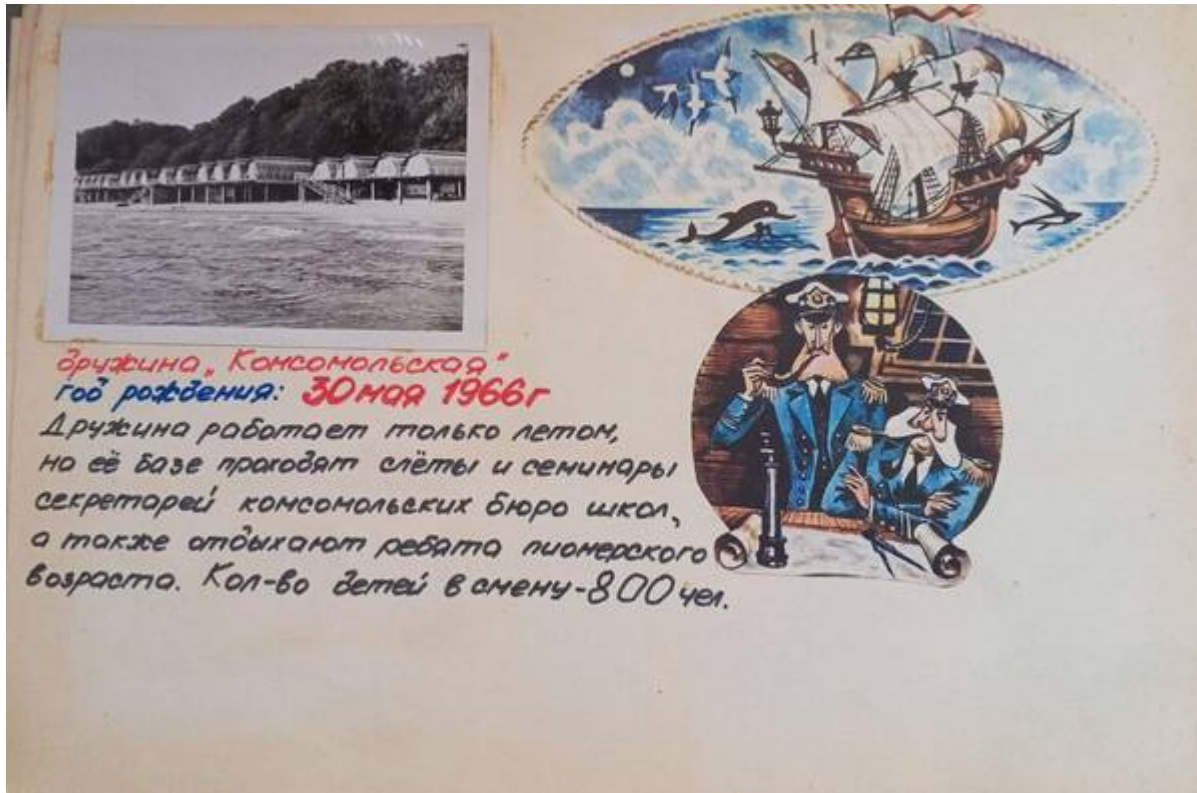 дружина „Комсомольская"
год рождения: 30 мая 1966г
Дружина работает только летом,
на её базе проходят слёты и семинары
секретарей комсомольских бюро школ,
а также отдыхают ребята пионерского
возраста. Кол-во детей в смену-800 чел.